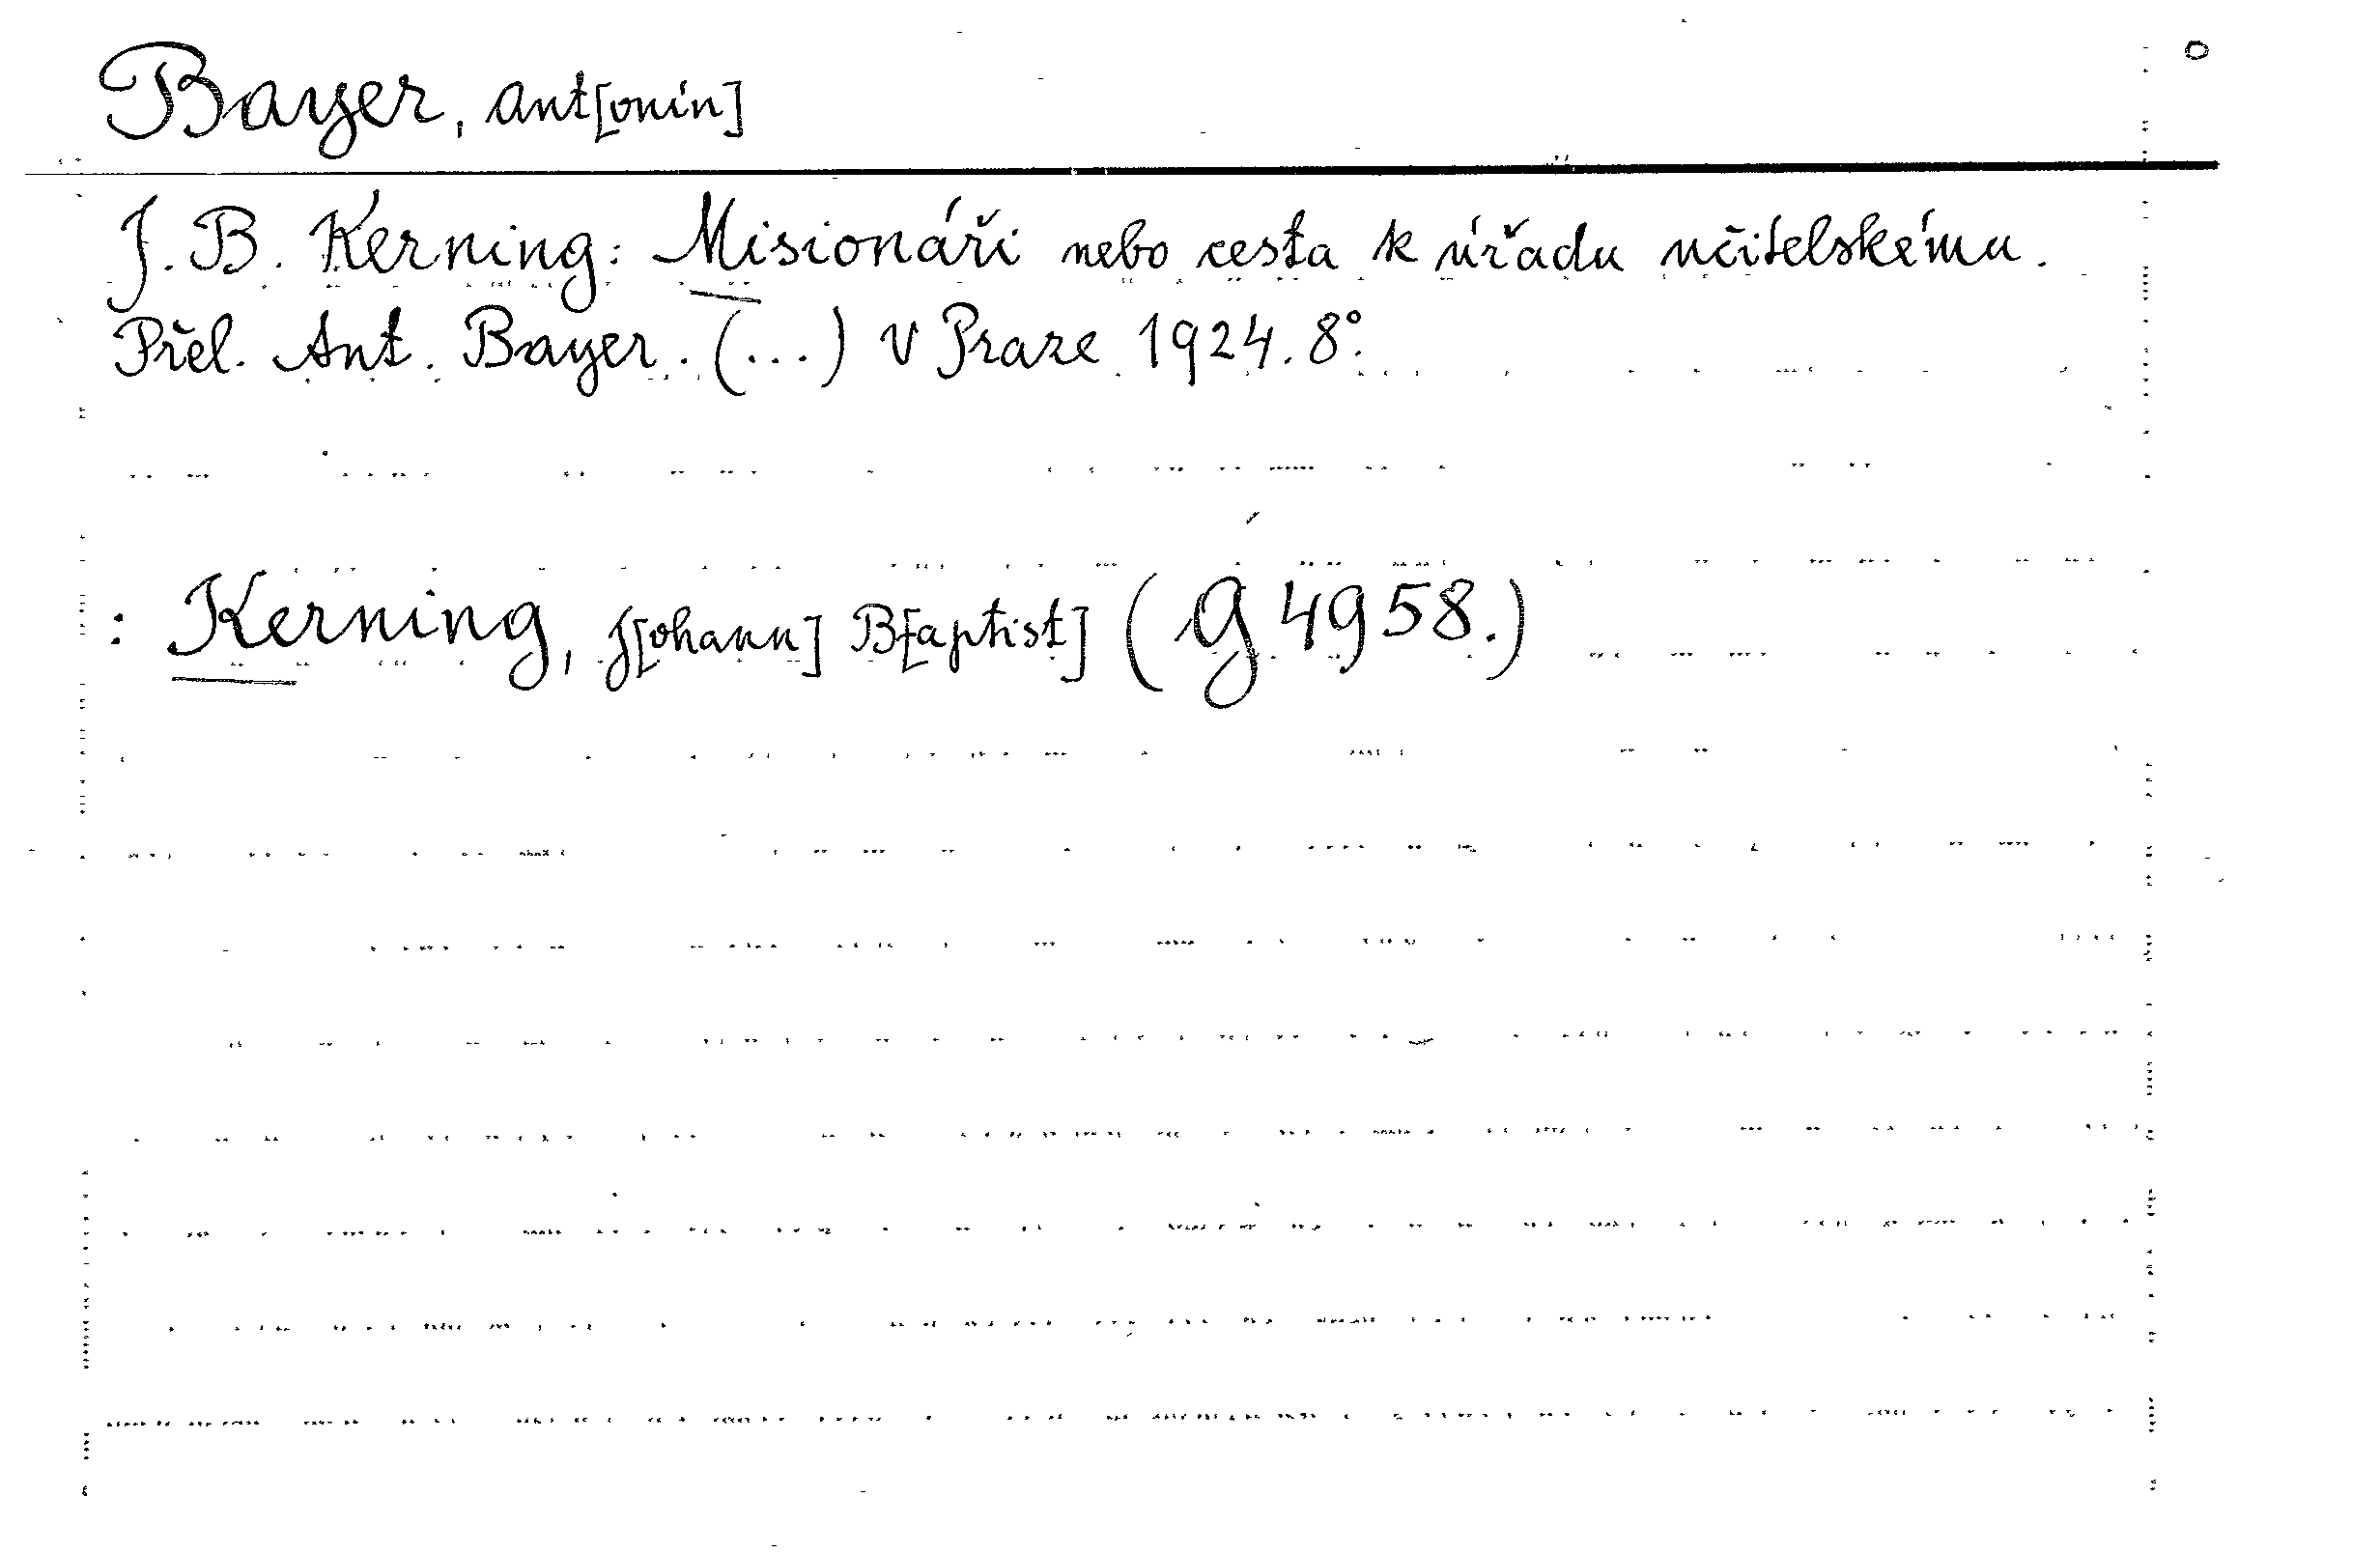 Bayer, Ant[onín]
J. B. Kerning: Misionáři nebo cesta k úřadu učitelskému.
Přel. Ant. Bayer. (...) V Praze 1924. 8°.
: Kerning, J[ohann] B[aptist] (G 4958.)